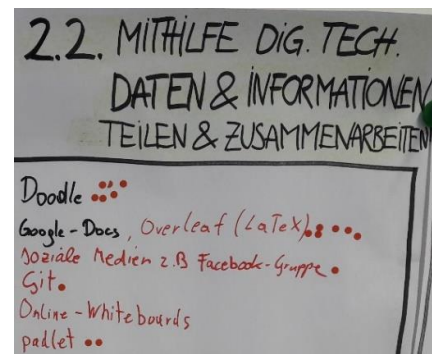 2.2. MITHILFE DiG. TECH.
DATEN & iNFORMATIONEN
TEILEN & ZUSAMMENARBEITEN
Doodle
Google-Docs, Overleaf (LaTeX)
soziale Medien z.B Facebook-Gruppe
Git
Online-Whiteboards
padlet